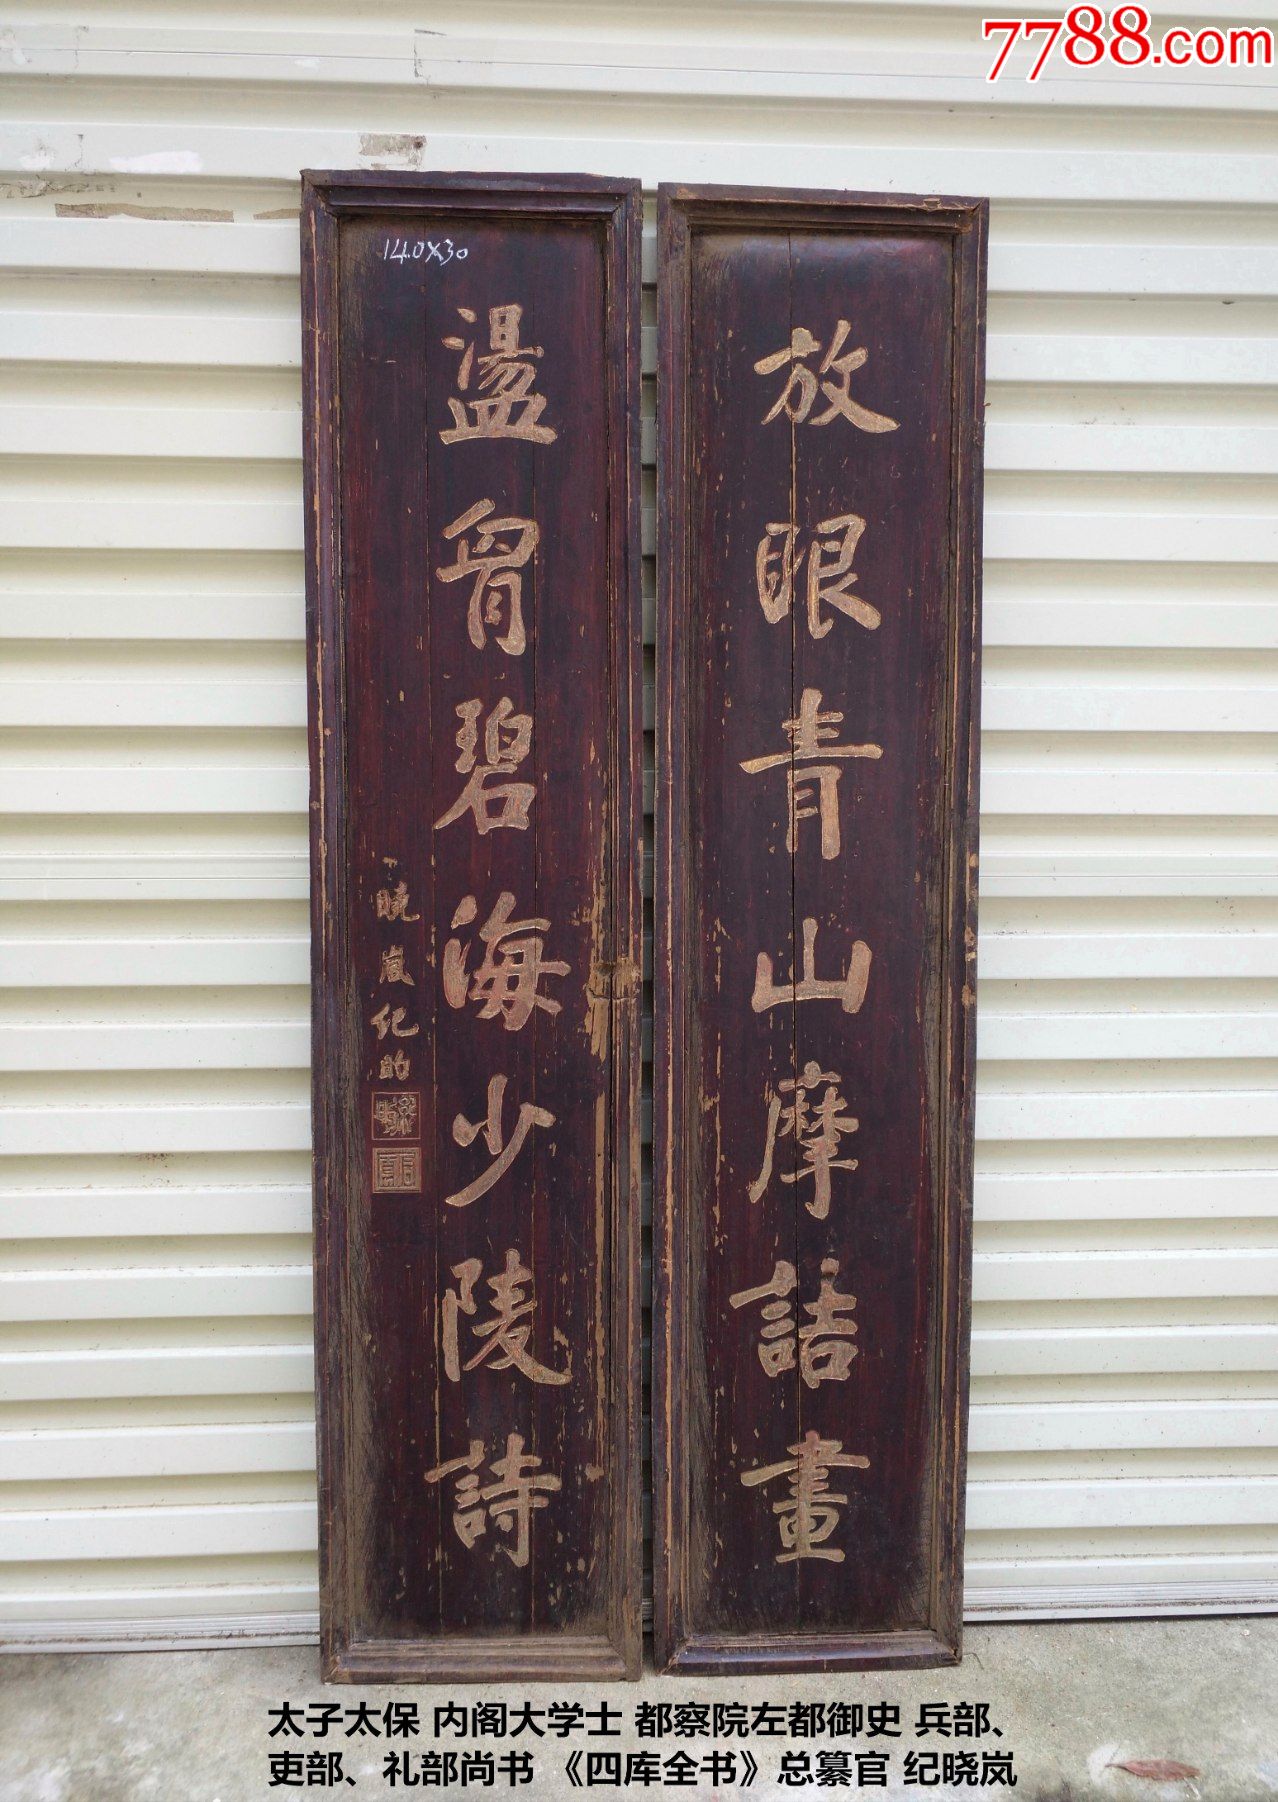 7788.com
140×30
放眼青山摩詰畫
盪胷碧海少陵詩
曉嵐纪昀
太子太保 内阁大学士 都察院左都御史 兵部、
吏部、礼部尚书 《四库全书》总纂官 纪晓岚